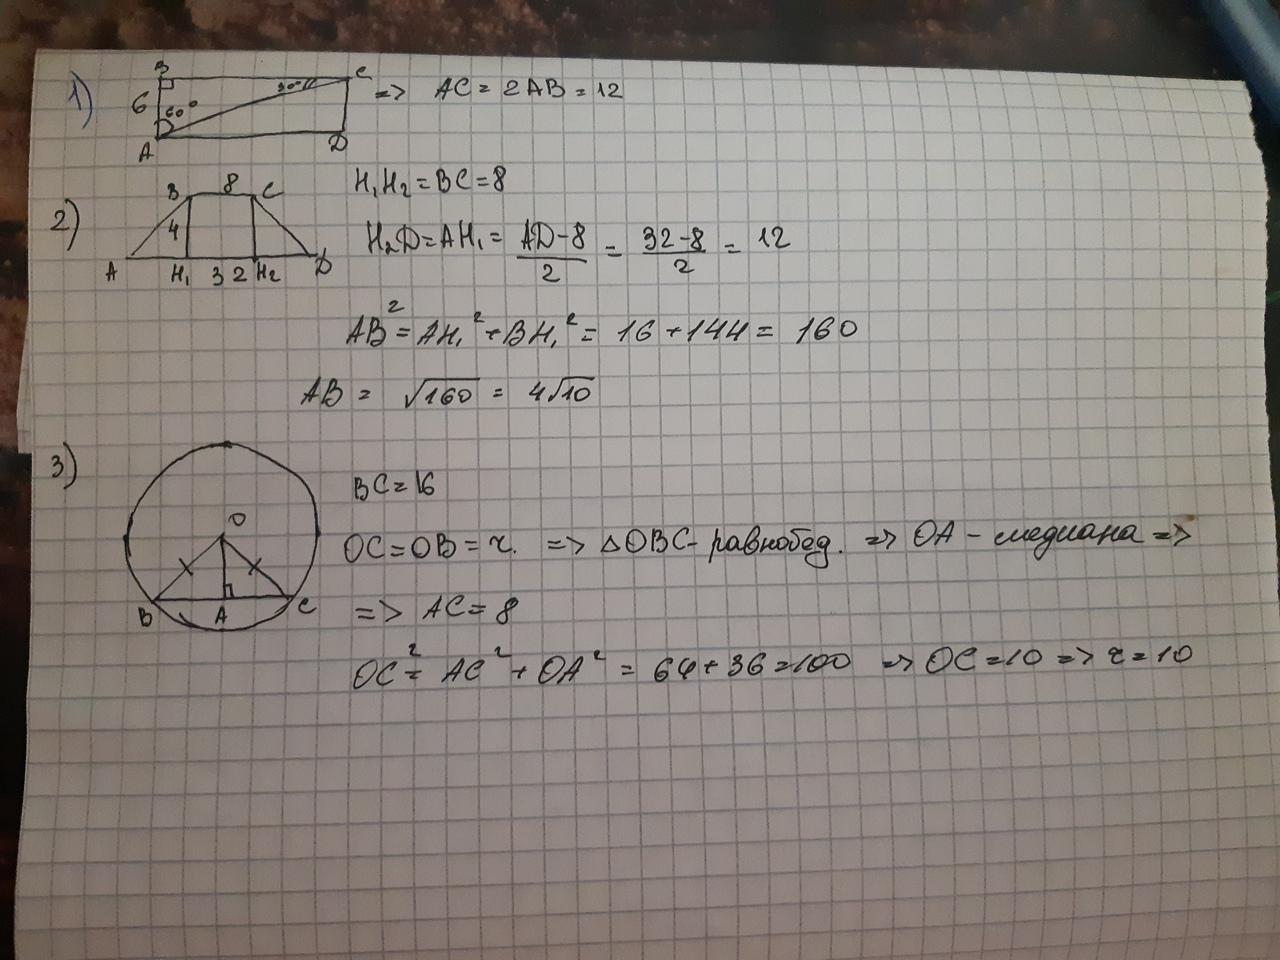 1)
B
C
6
60°
30°
A
D
=> AC = 2AB = 12
2)
B 8 C
4
A H₁ 32 H₂ D
H₁H₂ = BC = 8
H₂D = AH₁ = (AD-8)/2 = (32-8)/2 = 12
AB² = AH₁² + BH₁² = 16 + 144 = 160
AB = √160 = 4√10
3)
O
B A C
BC = 16
OC = OB = r. => △OBC - равнобед. => OA - медиана =>
=> AC = 8
OC² = AC² + OA² = 64 + 36 = 100 => OC = 10 => r = 10